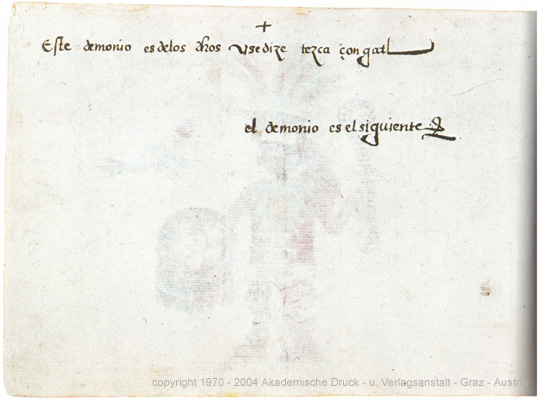 +
Este demonio es delos dhos y se dize tezca çon gatl
el demonio es el siguiente
copyright 1970 - 2004 Akademische Druck - u. Verlagsanstalt - Graz - Austria